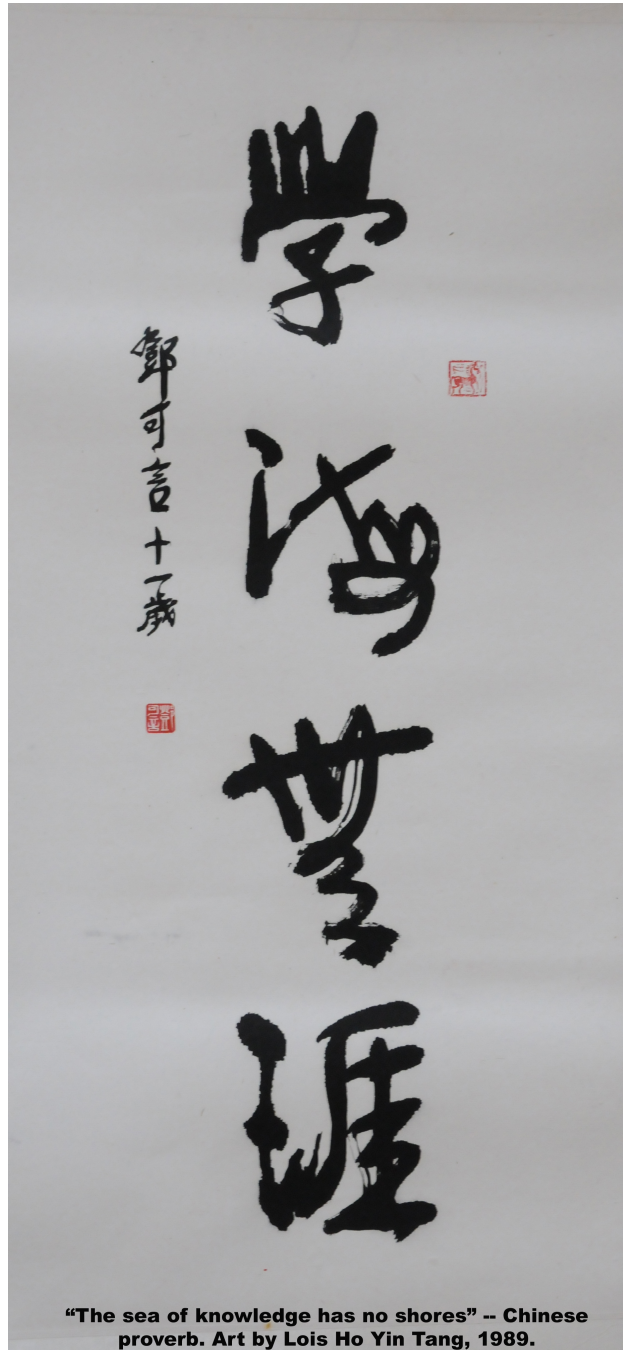 學海無涯
鄧可言十一歲
“The sea of knowledge has no shores” -- Chinese
proverb. Art by Lois Ho Yin Tang, 1989.